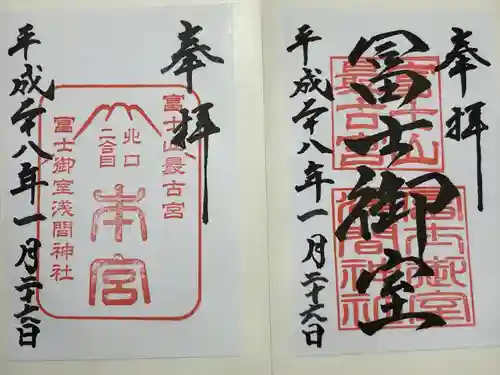 奉拝
冨士御室
平成二十八年一月二十六日
富士山
最古宮
冨士御室
浅間神社
奉拝
富士山最古宮
北口
二合目
本宮
冨士御室浅間神社
平成二十八年一月二十六日